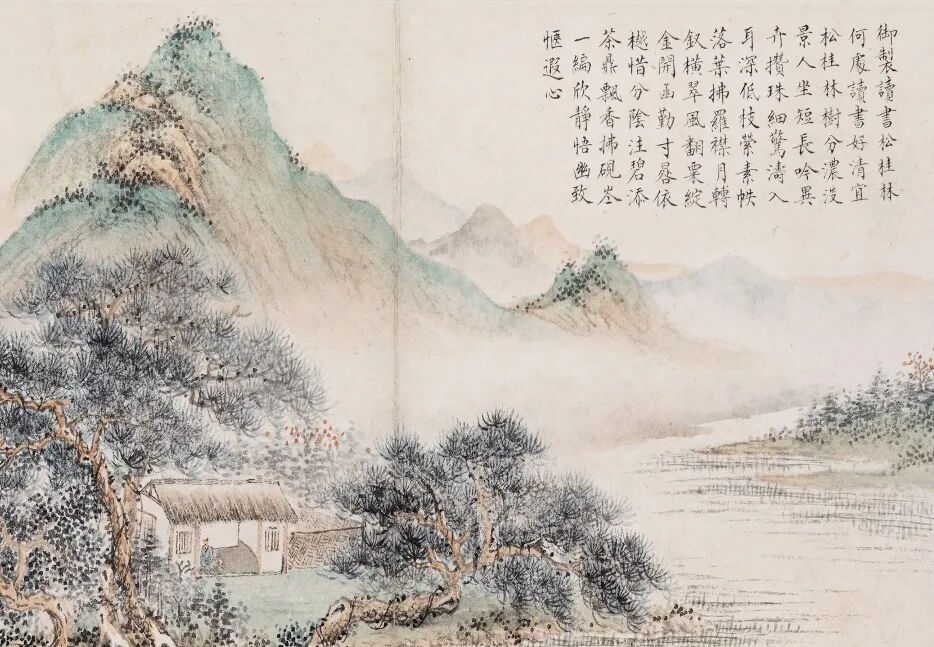 御製讀書松桂林
何處讀書好清宜
松桂林樹分濃
景人坐短長吟異
卉攢珠細驚濤入
耳深低枝縈素帙
落葉拂羅襟月轉
釵橫翠風翻粟綻
金開函勤寸晷依
樾惜分陰注碧添
茶鼎飄香拂硯岑
一編欣靜悟幽致
愜遐心